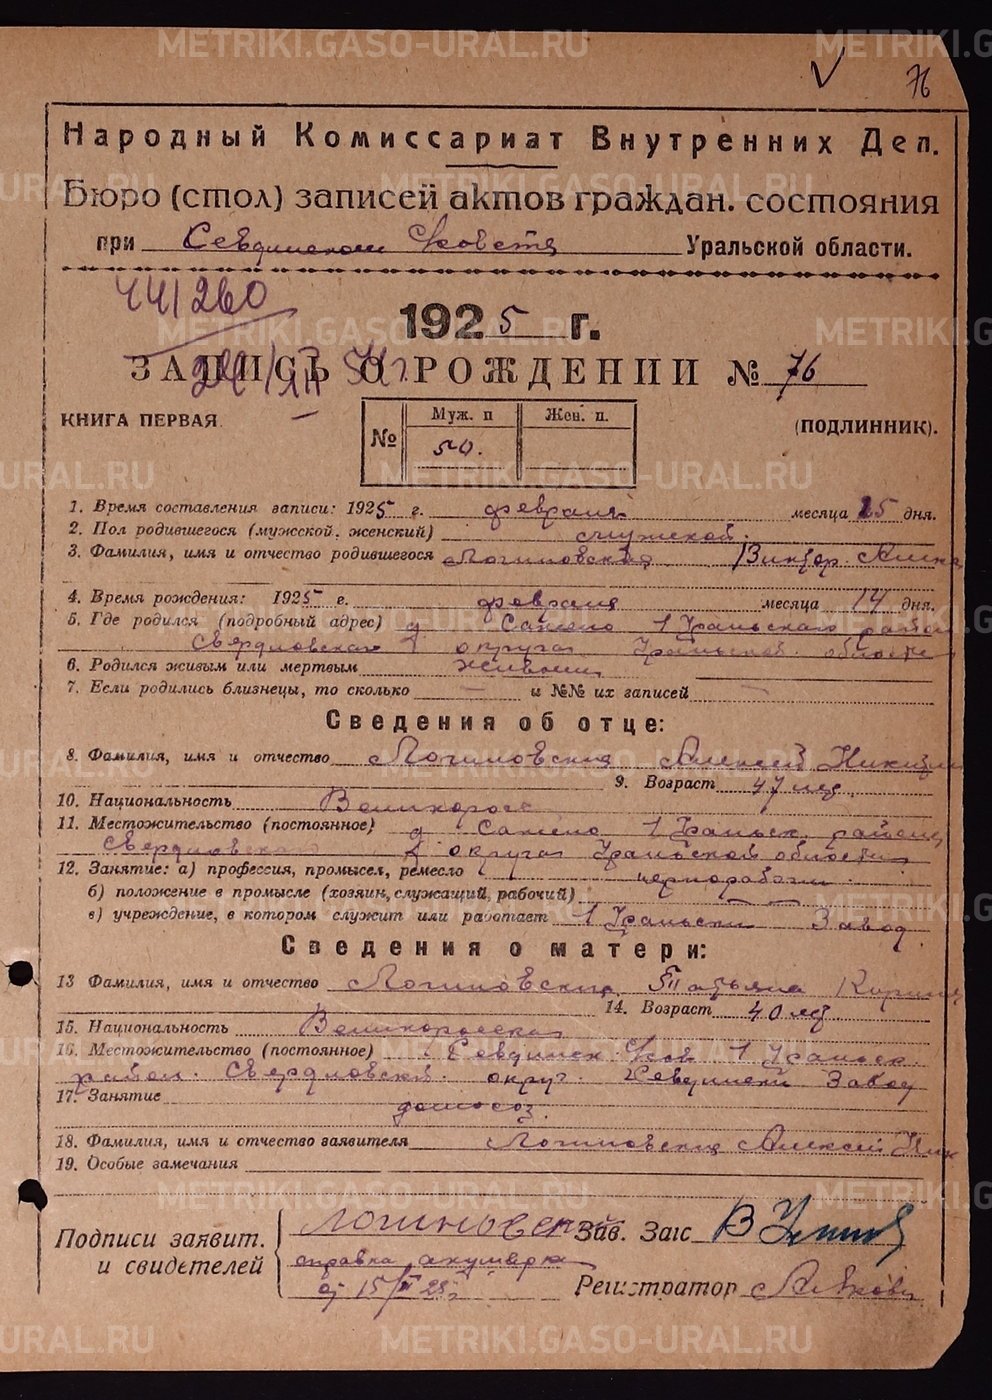 76
Народный Комиссариат Внутренних Дел.
Бюро (стол) записей актов граждан. состояния
при Уральской области.
441260
1925 г.
ЗАПИСЬ О РОЖДЕНИИ № 76
КНИГА ПЕРВАЯ. (ПОДЛИННИК).
№ Муж. п Жен. п.
50.
1. Время составления записи: 1925 г. февраля месяца 25 дня.
2. Пол родившегося (мужской, женский) мужской.
3. Фамилия, имя и отчество родившегося Логиновских Виктор
4. Время рождения: 1925 г. февраля месяца 14 дня.
5. Где родился (подробный адрес) д 1 Уральского район
Свердловского округа Уральской области
6. Родился живым или мертвым живым
7. Если родились близнецы, то сколько — и №№ их записей —
Сведения об отце:
8. Фамилия, имя и отчество Логиновских Алексей Никит
9. Возраст 47 лет.
10. Национальность Великоросс
11. Местожительство (постоянное) д 1 Уральск. района
Свердловского округа Уральской области
12. Занятие: а) профессия, промысел, ремесло чернорабочий
б) положение в промысле (хозяин, служащий, рабочий) —
в) учреждение, в котором служит или работает 1 Уральский Завод.
Сведения о матери:
13 Фамилия, имя и отчество Логиновских Татьяна
14. Возраст 40 лет
15. Национальность Великоросская
16. Местожительство (постоянное) Ревдинск. 1 Уральск.
район. Свердловской. округ. Ревдинский Завод
17. Занятие домохоз.
18. Фамилия, имя и отчество заявителя Логиновских Алексей Ник
19. Особые замечания
Подписи заявит. и свидетелей
Зав. Загс
справка акушерки
Регистратор
METRIKI.GASO-URAL.RU